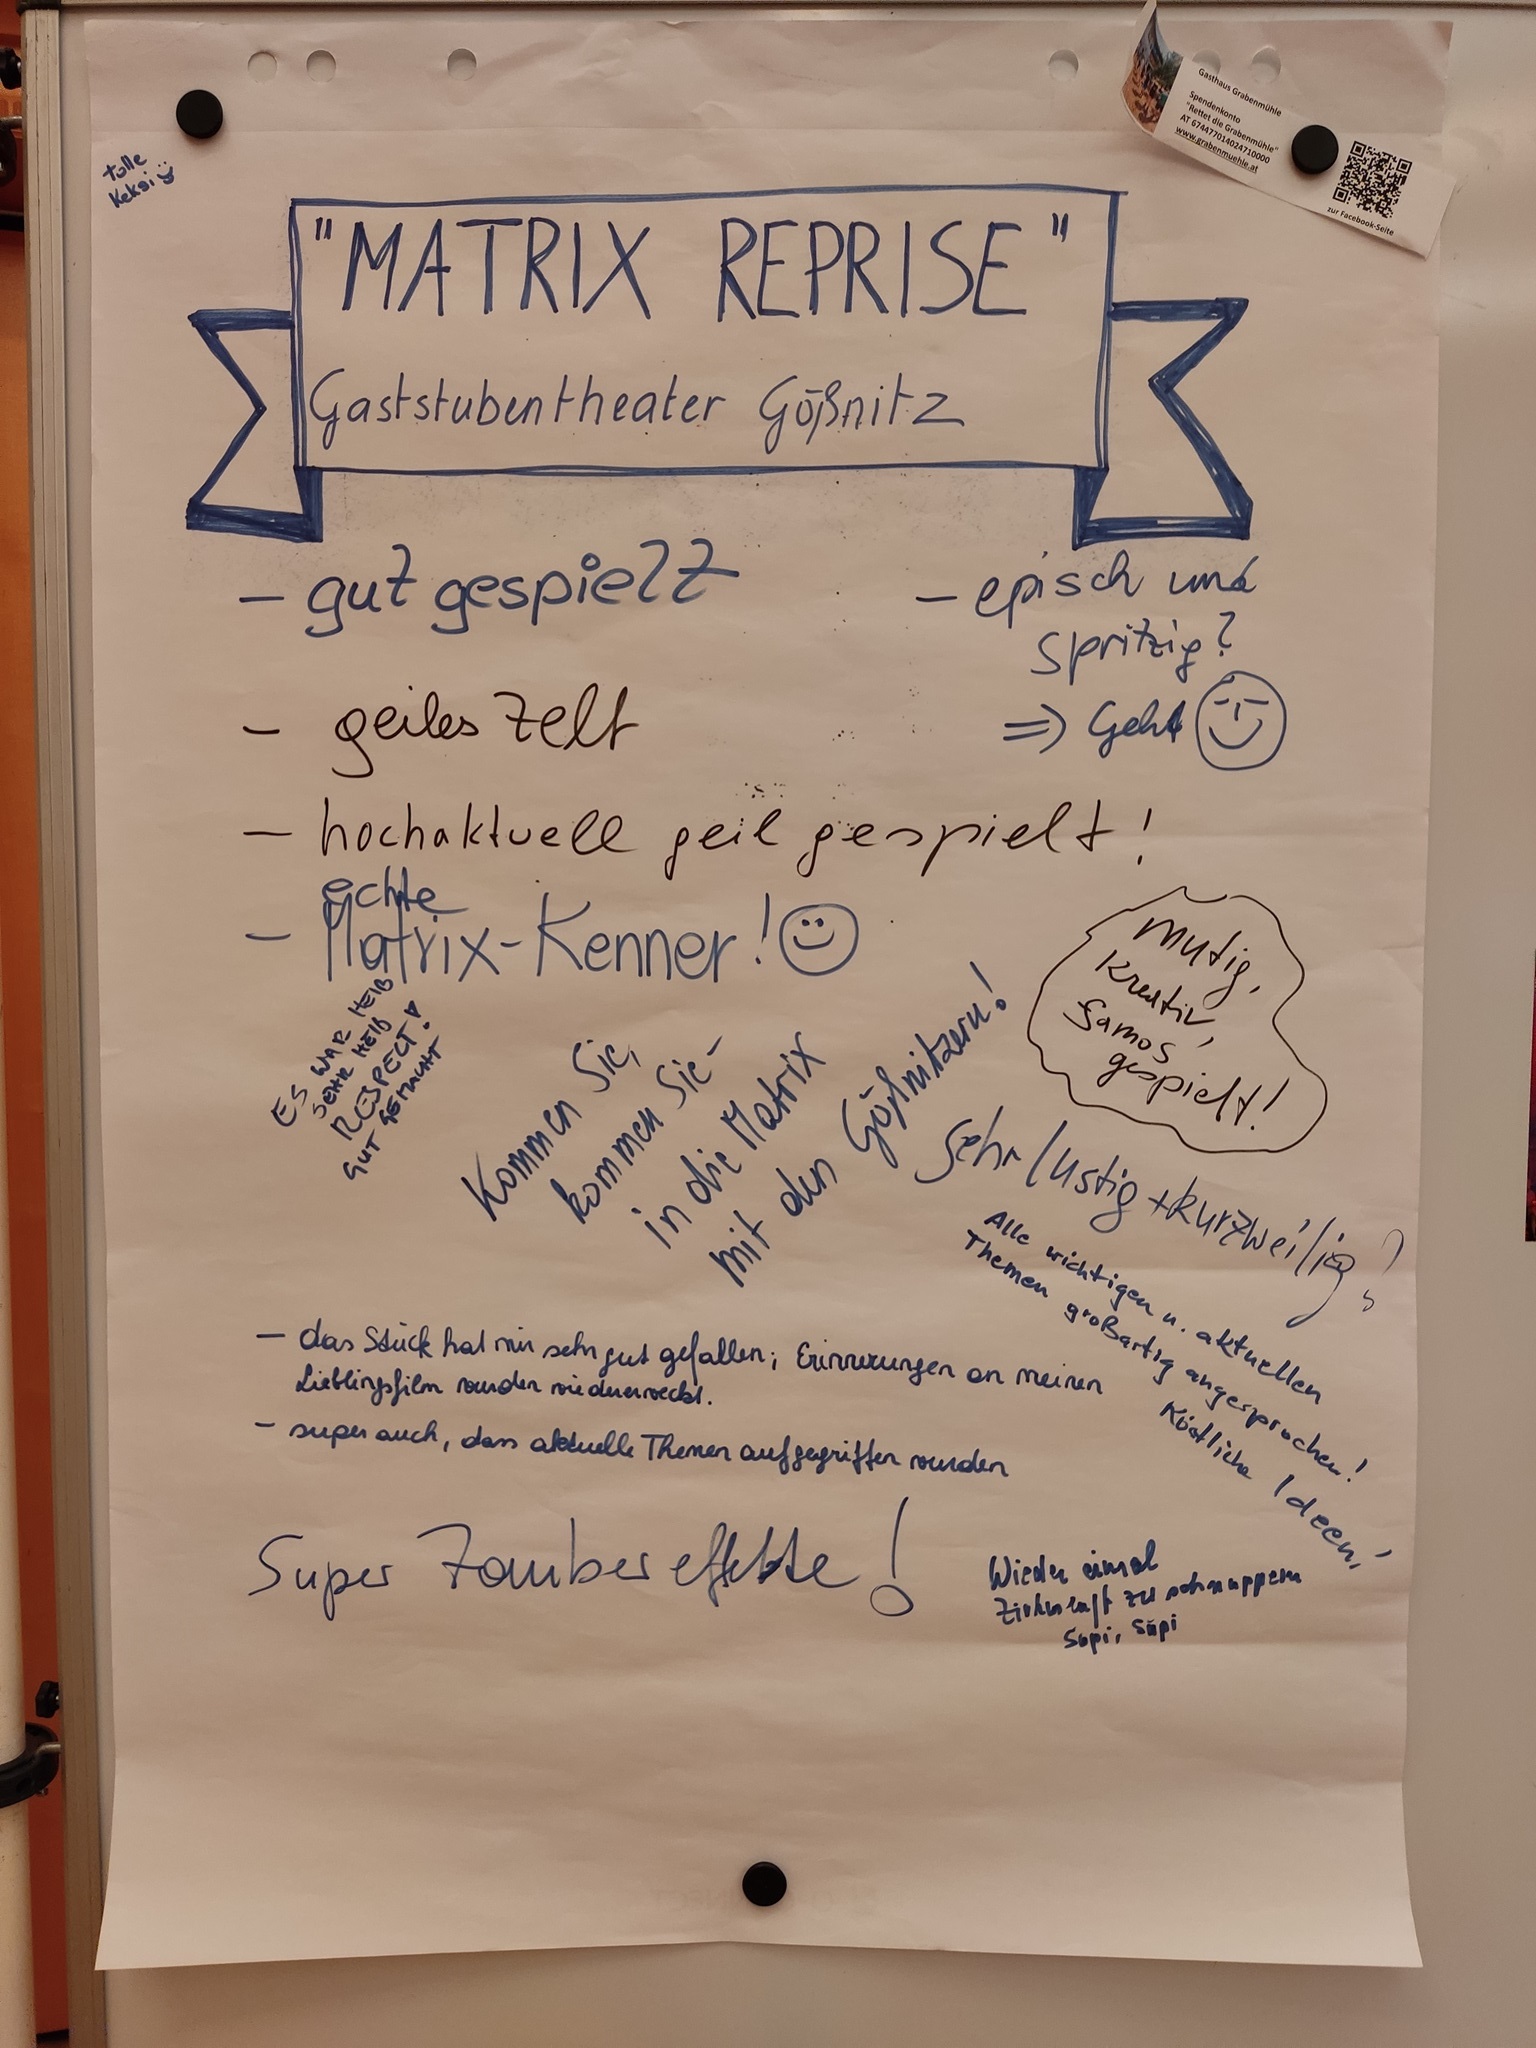 tolle
Keksi
Gasthaus Grabenmühle
Spendenkonto
"Rettet die Grabenmühle"
AT 674477014024710000
www.grabenmuehle.at
zur Facebook-Seite
"MATRIX REPRISE"
Gaststubentheater Gößnitz
- gut gespielt
- episch und
spritzig?
=> Geht
- geiles Zelt
- hochaktuell geil gespielt!
echte
- Matrix-Kenner!
ES WAR HEIß
SEHR HEIß
RESPECT!
GUT GEMACHT
Kommen Sie,
kommen Sie-
in die Matrix
mit den Gößnitzern!
mutig,
kreativ,
famos
gespielt!
Sehr lustig + kurzweilig!
Alle wichtigen u. aktuellen
Themen großartig angesprochen!
Köstliche Ideen!
- das Stück hat mir sehr gut gefallen; Erinnerungen an meinen
Lieblingsfilm wurden wiedererweckt.
- super auch, dass aktuelle Themen aufgegriffen wurden
Super Zaubereffekte!
Wieder einmal
Zirkusluft zu schnuppern
Supi, Supi